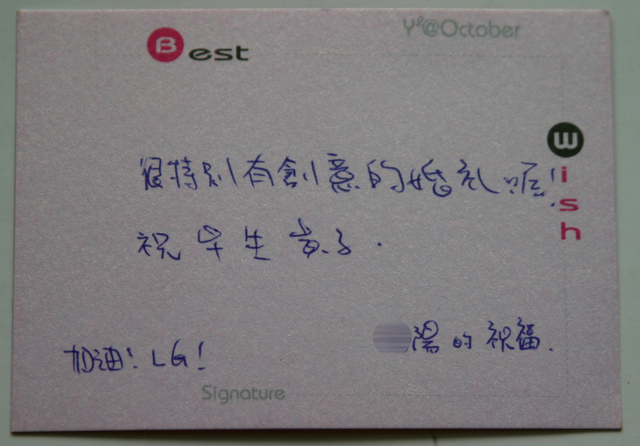 Best
Y²@October
Wish
很特別有創意的婚礼喔!
祝早生貴子.
加油! LG!
陽的祝福.
Signature